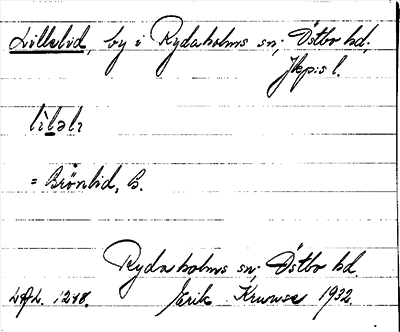 Lillelid, by i Rydaholms sn; Östbo hd,
Jkp:s l.
= Brönlid, B.
Rydaholms sn; Östbo hd.
1248. Erik Kruuse 1932.